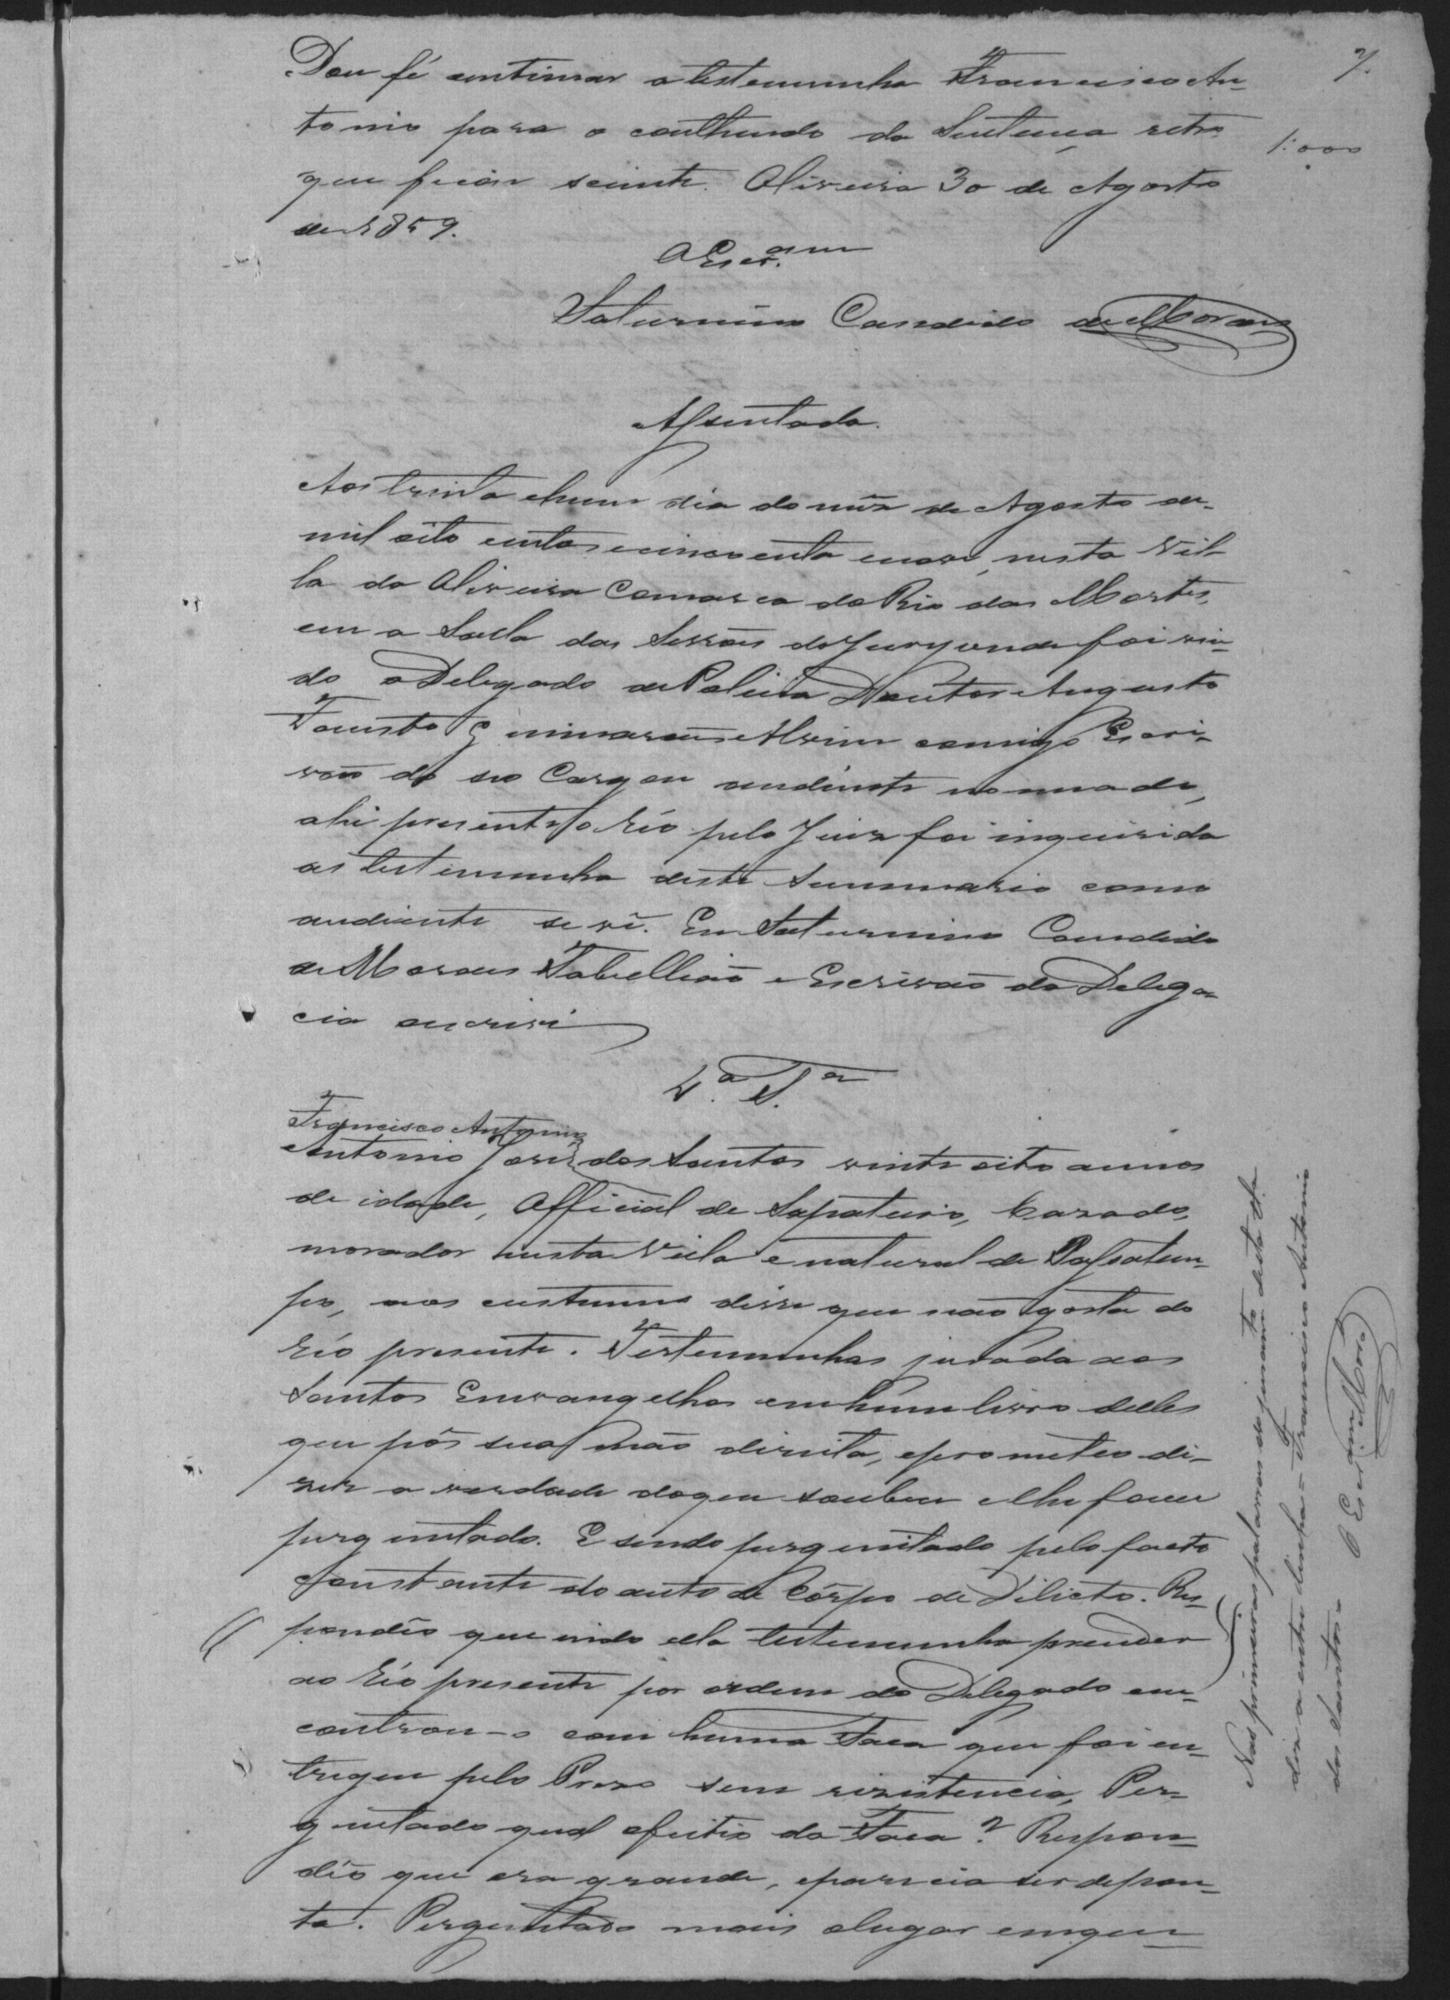 7.
Dou fé intimar a testemunha Francisco An-
tonio para o conthiudo da Sentença retro
que ficou sciente. Oliveira 30 de Agosto
de 1859.
1:000
O Escr.am
Saturnino Candido de Moraes
Assentada.
Aos trinta e hum dia do mêz de Agosto de
mil oito centos e cincoenta e nove, nesta Vil-
la da Oliveira Comarca do Rio das Mortes,
em a Salla das Sessões do Jury onde foi vin-
do o Delegado de Policia Doutor Augusto
Fausto Guimarães Alvim comigo Escri-
vão de seo Cargo ao adiante nomiado,
ahi presente o Réo pelo Juiz foi inquirida
as testemunha deste Summario como
audiente se vê. Eu Saturnino Candido
de Moraes Tabellião e Escrivão da Delega-
cia escrivi
4.a T.a
Francisco Antonio
Antonio José dos Santos vinte oito annos
de idade, Official de Sapateiro, Cazado,
morador nesta Villa e natural de Passatem-
po, aos custumes disse que não gosta do
Réo presente. Testemunhas jurada aos
Santos Envangelhos em hum livro delles
que pôs sua mão direita, e prometeo di-
zer a verdade do que soubece e lhe foce
perguntado. E sendo perguntado pelo facto
Constante do auto de Côrpo de Dilicto. Res-
pondêo que indo ella testemunha prender
ao Réo presente por ordem do Delegado en-
controu-o com huma Faca que foi en-
tregue pelo Prezo sem rezistencia, Per-
guntado qual o feitio da Faca? Respon-
dêo que era grande, e parecia ser de pon-
ta. Perguntado mais o lugar em que
Nas primeiras palavras do juramto desta Ta
diz a entre linha = Francisco Antonio
dos Santos =
O Escr.am Mor.s